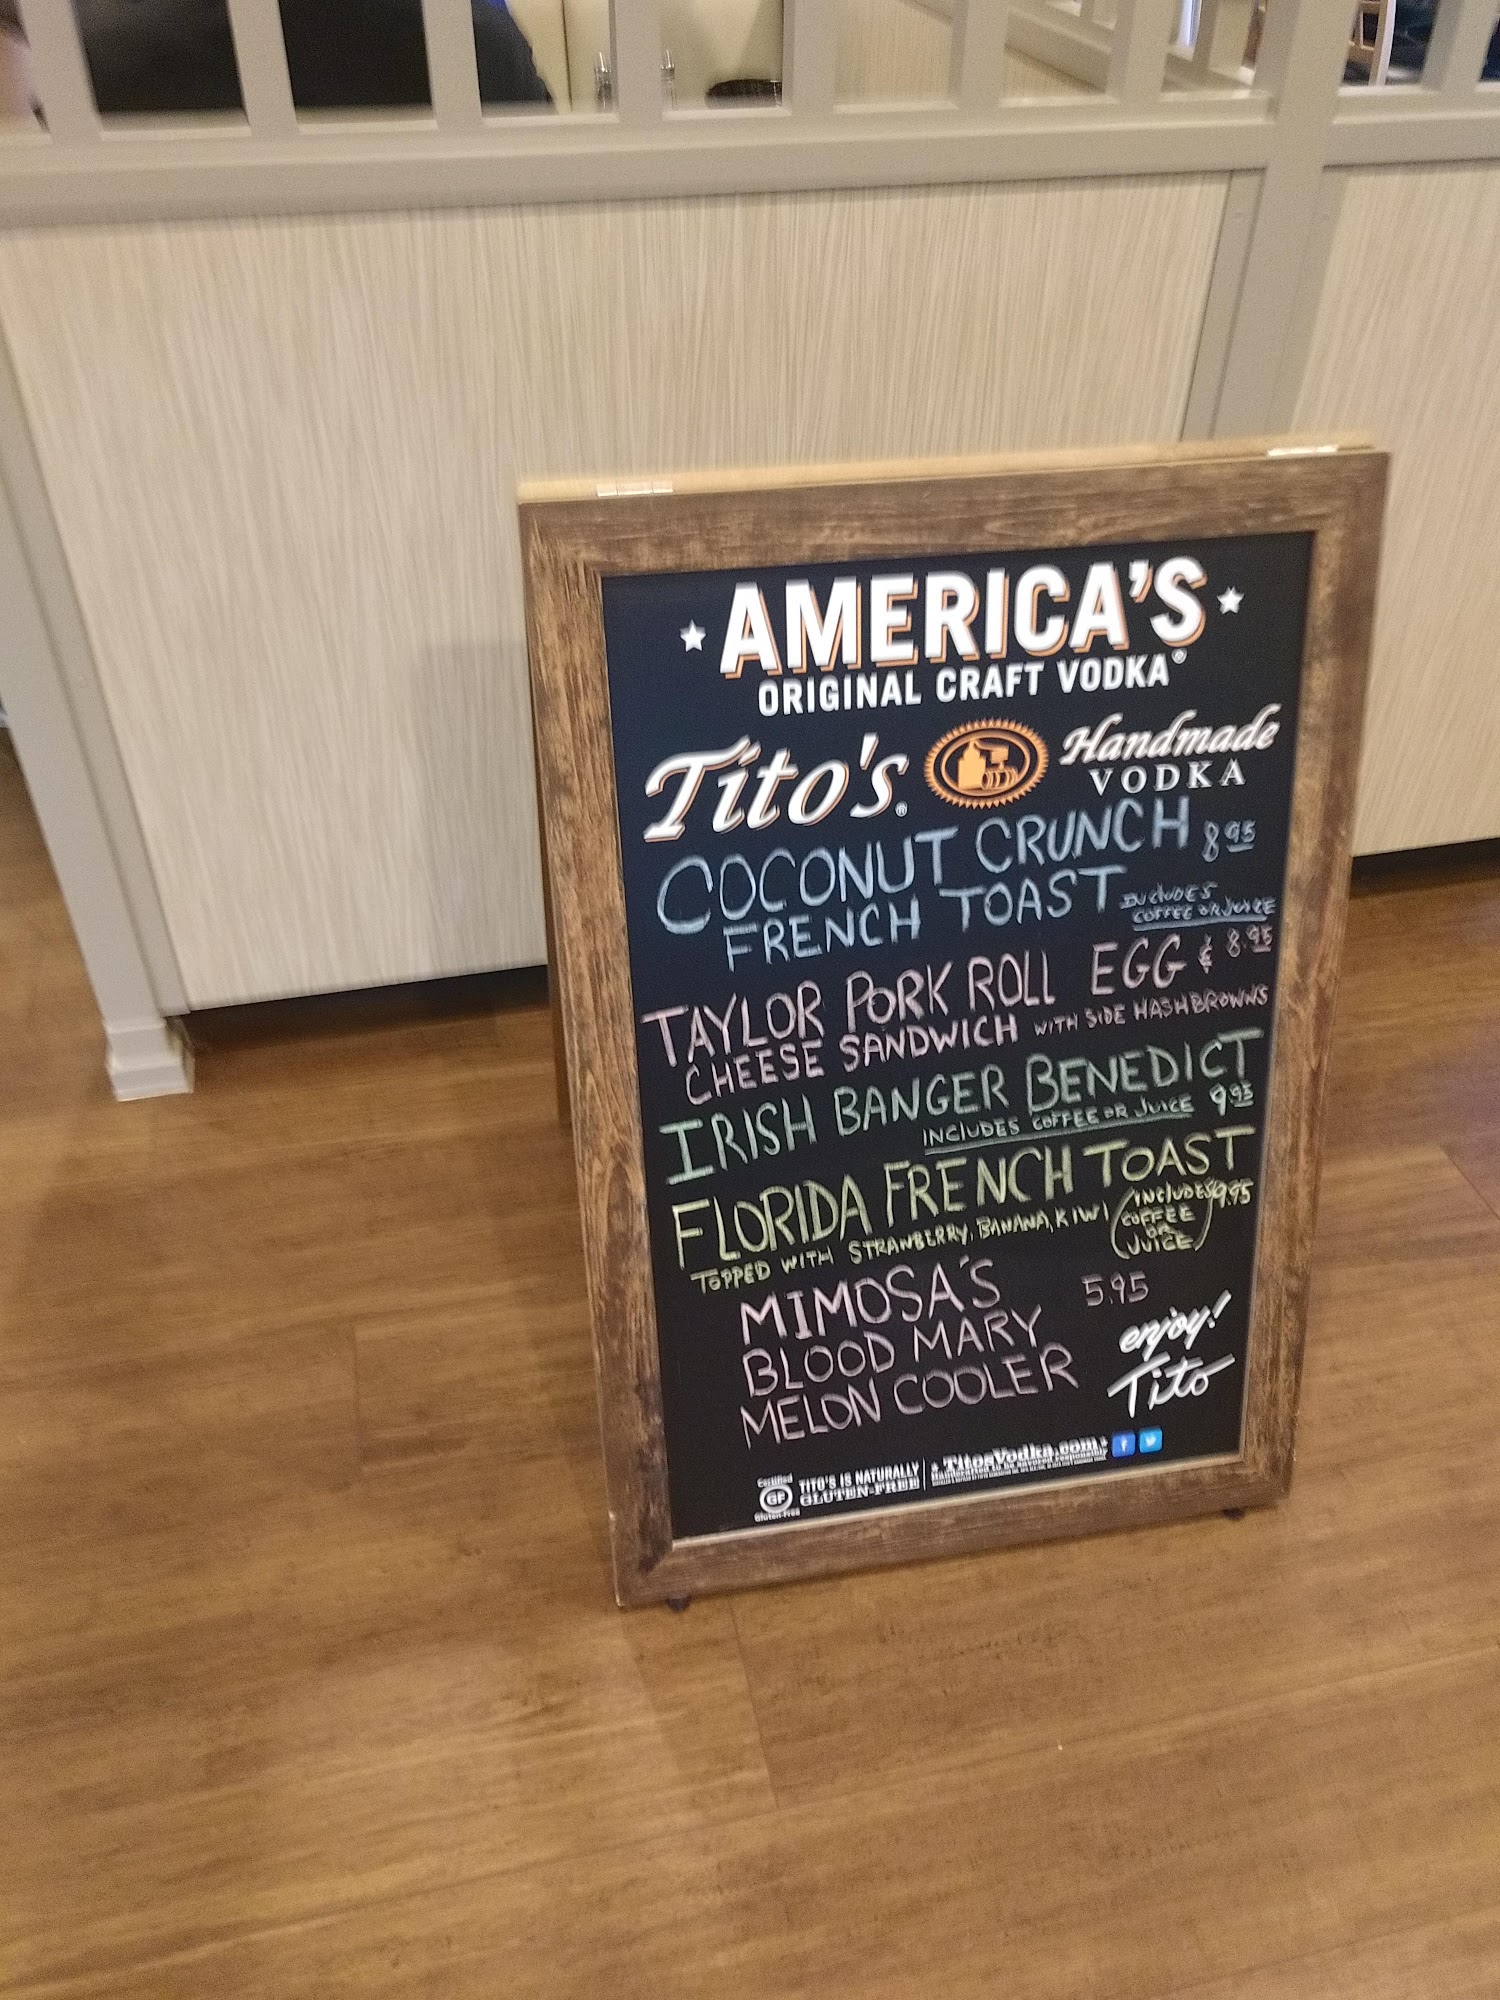 AMERICA'S
ORIGINAL CRAFT VODKA®
Tito's® Handmade
VODKA
COCONUT CRUNCH 8.95
FRENCH TOAST INCLUDES
COFFEE OR JUICE
TAYLOR PORK ROLL EGG & 8.95
CHEESE SANDWICH WITH SIDE HASHBROWNS
IRISH BANGER BENEDICT
INCLUDES COFFEE OR JUICE 9.95
FLORIDA FRENCH TOAST
TOPPED WITH STRAWBERRY, BANANA, KIWI (INCLUDES COFFEE OR JUICE) 9.95
MIMOSA'S 5.95
BLOOD MARY
MELON COOLER
enjoy!
Tito
Certified
GF
Gluten-Free
TITO'S IS NATURALLY
GLUTEN-FREE
TitosVodka.com
Handcrafted to be savored responsibly